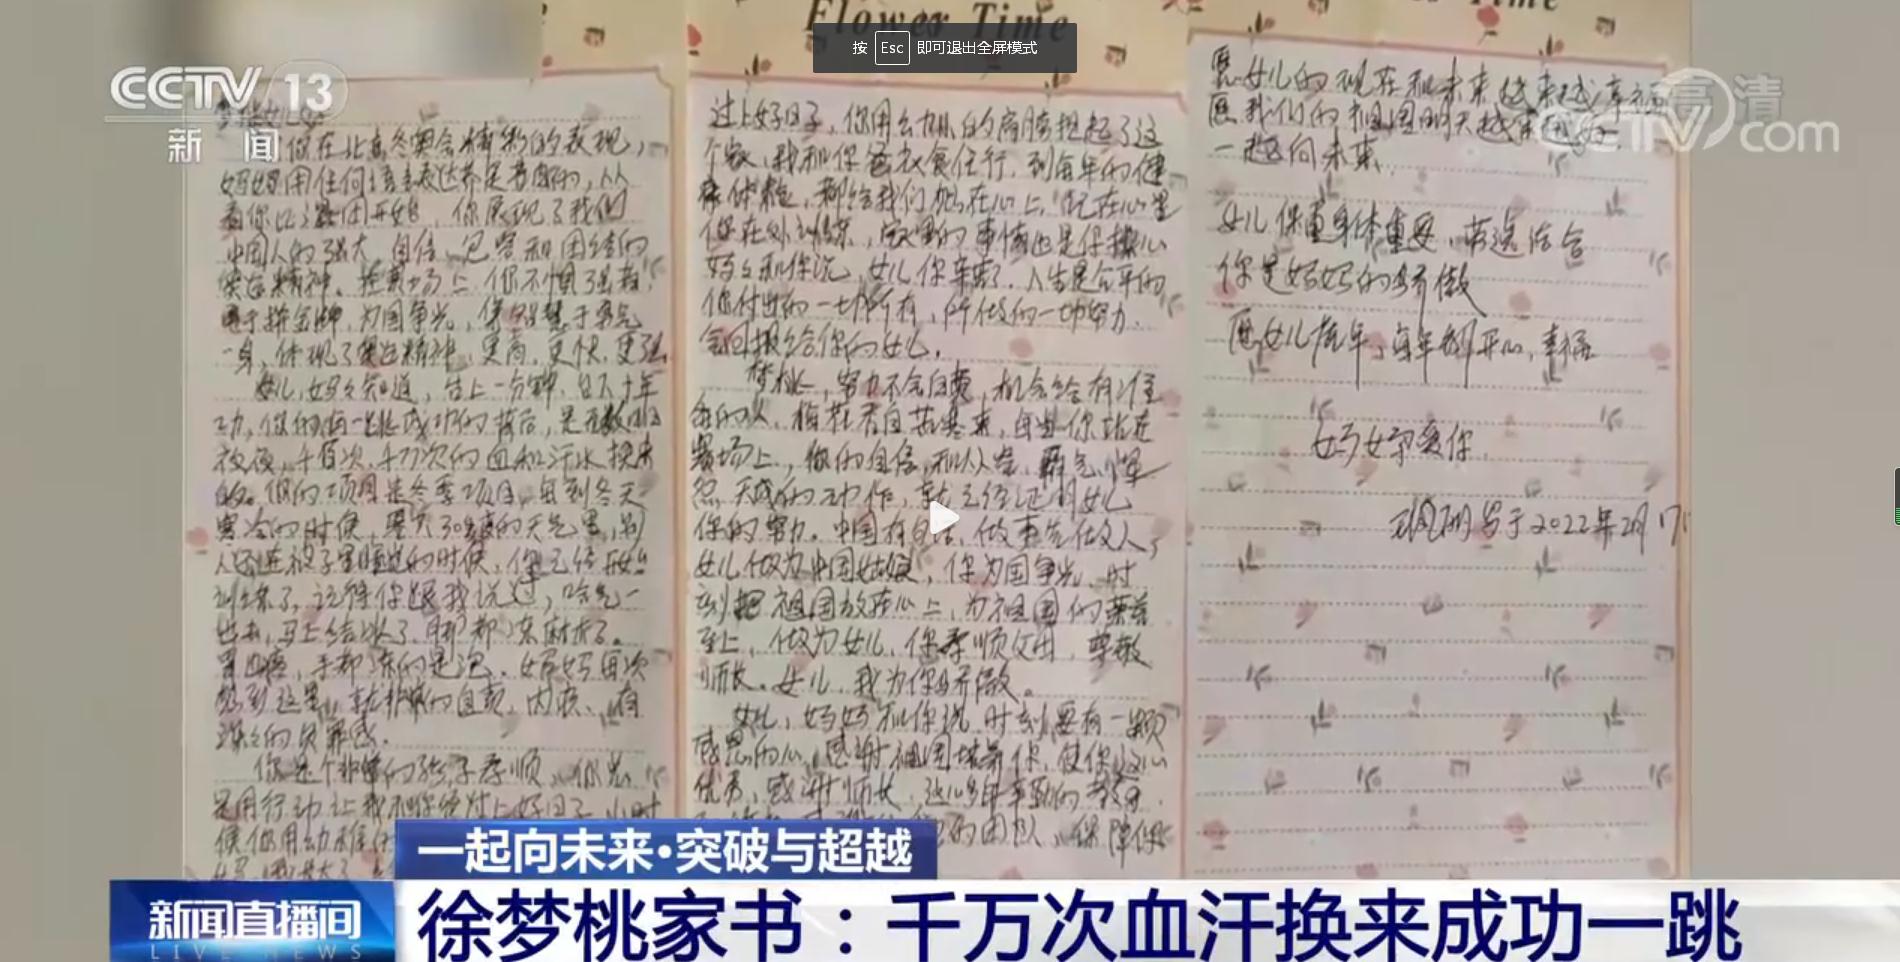 Flower Time
按 Esc 即可退出全屏模式
CCTV 13
新闻
高清
CCTV com
你在北京冬奥会精彩的表现，
妈妈用任何语言表达都是苍白的，从
看你比赛开始，你展现了我们
中国人的强大、自信、包容和团结的
奥运精神。在赛场上你不惧强敌，
勇于拼金牌，为国争光，集智慧于勇气
一身，体现了奥运精神，更高，更快，更强
女儿，妈妈知道，台上一分钟，台下十年
功，你的每一跳成功的背后，是无数
夜夜，千百次，千万次的血和汗水换来
的。你的项目是冬季项目，每到冬天
寒冷的时候，零下30多度的天气里，别
人还在被子里睡觉的时候，你已经开始
训练了，记得你跟我说过，哈气一
出来，马上结冰了，脚都冻麻木了。
手都冻的是泡。妈妈每次
想到这里，就非常的自责，内疚，有
深深的负罪感。
你是个非常的孩子孝顺
是用行动让我和你爸过上好日子，小时
候你用幼稚的
过上好日子，你用幼小的肩膀担起了这
个家，我和你爸衣食住行，到每年的健
康体检，都给我们挂在心上，记在心里
你在外训练，家里的事情也是你操心
妈妈和你说，女儿你辛苦了，人生是公平的
你付出的一切所有，所做的一切努力，
会回报给你的女儿。
梦桃，努力不会白费，机会给有准
备的人，梅花香自苦寒来，每当你站在
赛场上，你的自信，和从容，霸气
天成的动作，就已经证明女儿
你的努力。中国有句话，做事先做人，
女儿做为中国姑娘，你为国争光，时
刻把祖国放在心上，为祖国的荣誉
至上，做为女儿，你孝顺父母，尊敬
师长。女儿，我为你骄傲。
女儿，妈妈和你说，时刻要有一颗
感恩的心，感谢祖国培养你，使你这么
优秀，感谢师长，这么多年辛勤的教育，
的团队，保障你
愿女儿的现在和未来越来越幸福
愿我们的祖国明天越来越好
一起向未来。
女儿保重身体重要，劳逸结合
你是妈妈的骄傲
愿女儿虎年，每年都开心，幸福
妈妈爱你
写于2022年2月17
一起向未来·突破与超越
新闻直播间
LIVE NEWS
徐梦桃家书：千万次血汗换来成功一跳